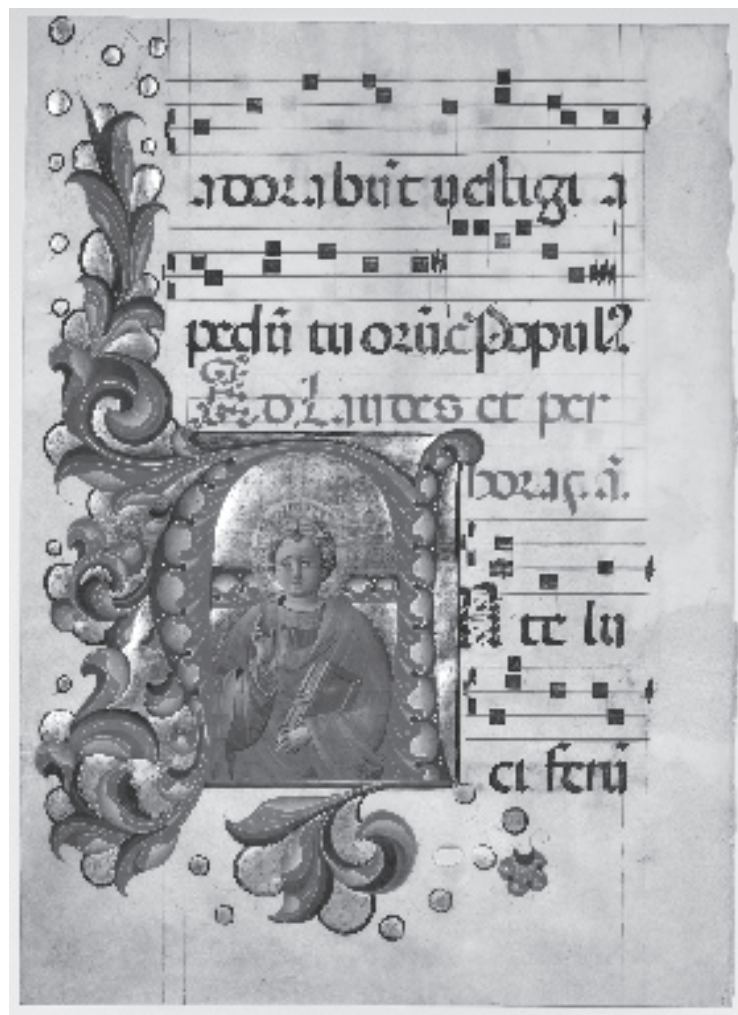 adorabūt vestigi a
pedū tuorū
Ad Laudes et per
horas. ā.
AN te lu
ci ferū